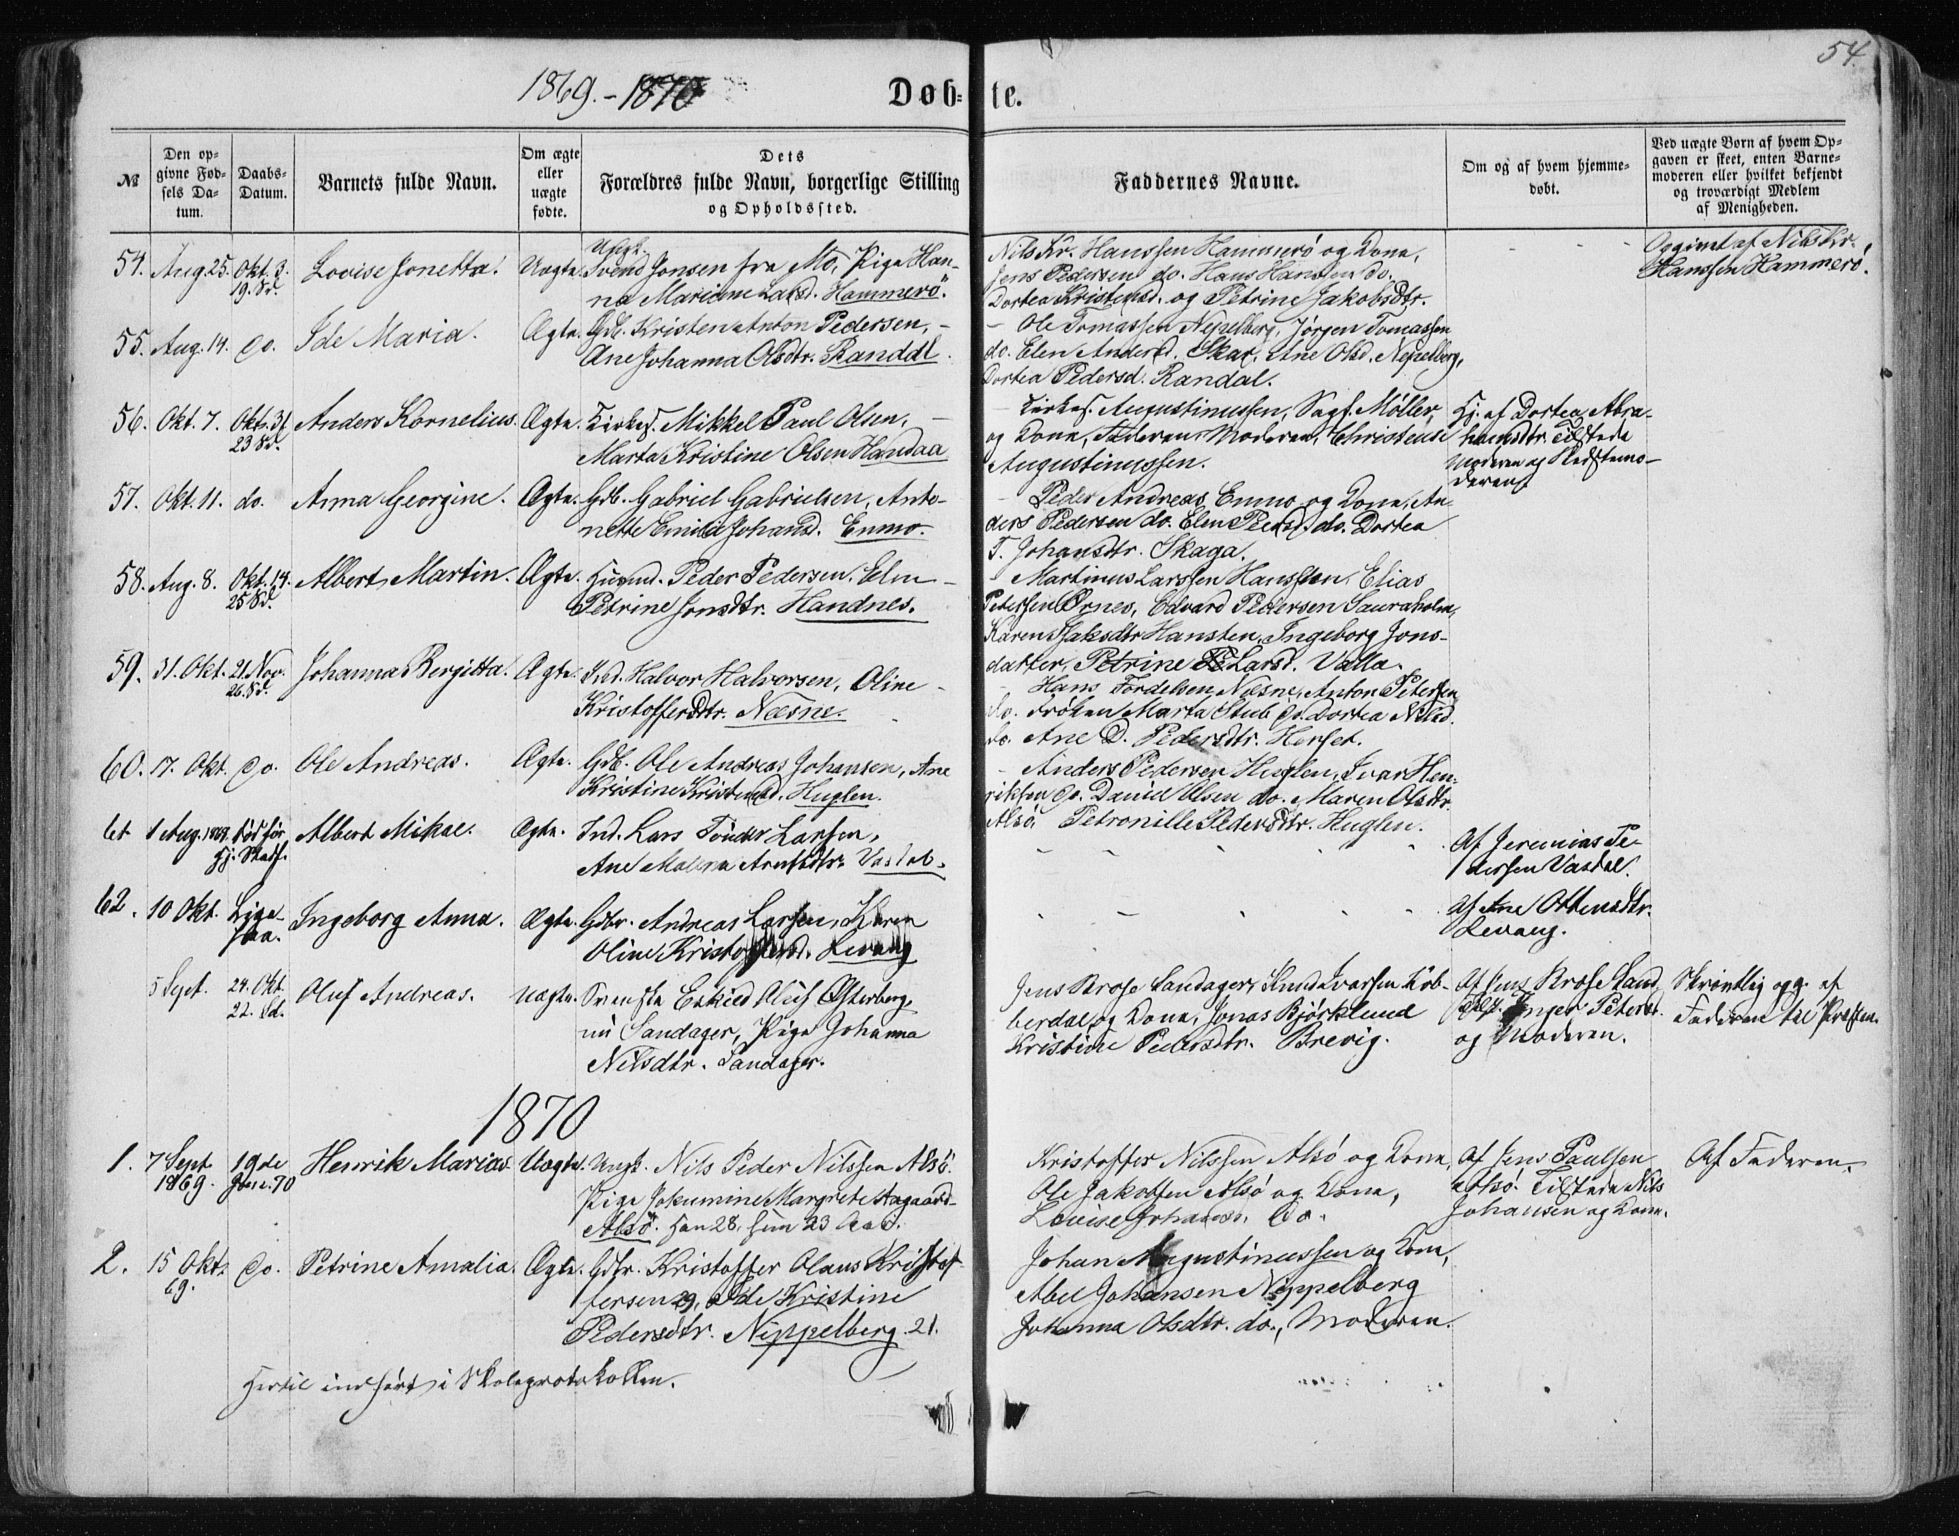 54.
1869.-1870
Døb-te.
№
Den op-
givne Fød-
sels Da-
tum.
Daabs-
Datum.
Barnets fulde Navn.
Om ægte
eller
uægte
fødte.
Dets
Forældres fulde Navn, borgerlige Stilling
og Opholdssted.
Faddernes Navne.
Om og af hvem hjemme-
døbt.
Ved uægte Børn af hvem Op-
gaven er skeet, enten Barne-
moderen eller hvilket bekjendt
og troværdigt Medlem
af Menigheden.
54. Aug. 25. Okt. 3.
19. Sd.
Lovise Jonetta. Uægte.
Ungk.
Svend Jonsen fra Mo, Pige Han-
na Marianne Larsd. Hammerö.
Nils Kr. Hanssen Hammerö og Kona,
Jens Pedersen do. Hans Hansen do.
Dortea Kristensd. og Petrine Jakobsdtr.
Opgivet af Nils Kr.
Hanssen Hammerö.
55. Aug. 14. do. Ide Maria. Ægte. Gdb. Kristen Anton Pedersen, -
Ane Johanna Olsdtr. Randal.
- Ole Tomassen Nepelberg, Jørgen Tomassen
do. Elen Andersd. Skar, Ane Olsd. Nepelberg,
Dortea Pedersd. Randal.
56. Okt. 7. Okt. 31
23 Sd.
Anders Kornelius. Ægte. Kirkes. Mikkel Paul Olsen, -
Marta Kristine Olsen Handaa
- Kirkes. Augustinussen, Sagf. Møller,
og Kona, Faderen, Moderen, Christense
Augustinussen.
Hj. af Dortea Abra-
hamsdtr. Tilstede
Moderen og Stedfemo-
deren
57. Okt. 11. do. Anna Georgine. Ægte. Gdb. Gabriel Gabrielsen, Anto-
nette Emilie Johansd. Enmo.
- Peder Andreas Enmo og Kona, An-
ders Pedersen do. Elen Pedersd. do. Dortea
T. Johansdtr. Skaga.
58. Aug. 8. Okt. 14.
25 Sd.
Albert Martin. Ægte. Husmd. Peder Pedersen, Elen -
Petrine Jonsdtr. Handnes.
- Martinus Larssen Hansten, Elias
Petersen Ørnes, Edvard Pedersen Sauraholm,
Karen Isaksdtr Hansten, Ingeborg Jons-
datter, Petrine Larsd. Valla.
59. 31. Okt. 21. Nov.
26. Sd.
Johanna Bergitta. Ægte. Ind. Halvor Halvorsen, Oline -
Kristofferdtr. Næsne.
- Hans Tordelsen Næsne, Anton Petersen
do. Frøken Marta Stub do. Dortea Nilsd.
do. Ane D. Pedersdtr. Herset.
60. 17. Okt. do. Ole Andreas. Ægte. Gdb. Ole Andreas Johansen, Ane
Kristine Kristensd. Huglen.
- Anders Pedersen Huglen, Ivar Hen-
riksen do. David Olsen do. Maren Olsdtr.
Alsö, Petronille Pedersdtr. Huglen.
61 1 Aug. 1869. død før
Hj. Stadf.
Albert Mikae. Ægte. Ind. Lars Tönder Larsen,
Ane Malena Arntsdtr. Vasdal.
Af Jeremias Pe-
dersen Vasdal.
62. 10 Okt. Lige-
saa.
Ingeborg Anna. Ægte. Gdbr. Andreas Larsen, Karen
Oline Kristoffersd. Levang
Af Ane Ottensdtr.
Levang.
5 Sept. 24. Okt.
22. Sd.
Oluf Andreas. Uægte. Svenske Eskild Oluf Østerberg,
nu Sandager, Pige Johanna
Nilsdtr. Sandager.
Jens Brose Sandager, Knud Ivarsen Kob-
berdal og Kona, Jonas Björklund
Kristine Pedersdtr. Brevig.
Af Jens Brose Sand
Inger Petersd.
og Moderen.
Skriftlig opg. af
Faderen til Præsten.
1870
1. 7 Sept
1869.
19de
Jan. 70
Henrik Marias. Uægte. Ungk. Nils Peder Nilssen Alsö.
Pige Jokumine Margrete Aagaard-
Alsö. Han 28, hun 23 Aar.
Kristoffer Nilssen Alsö og Kona,
Ole Jakobsen Alsö og Kona,
Lovise Johansn. do.
Af Jens Paulsen
Alsö. Tilstede Nils
Johansen og Kona.
Af Faderen.
2. 15 Okt.
69.
do. Petrine Amalia. Ægte. Gdbr. Kristoffer Olaus Kristof-
fersen 29, Ide Kristine
Pedersdtr. Nippelberg 21.
Johan Augustinussen og Kona,
Abel Johansen Nippelberg
Johanna Olsdtr. do., Moderen.
Hertil indført i Skoleprotokollen.